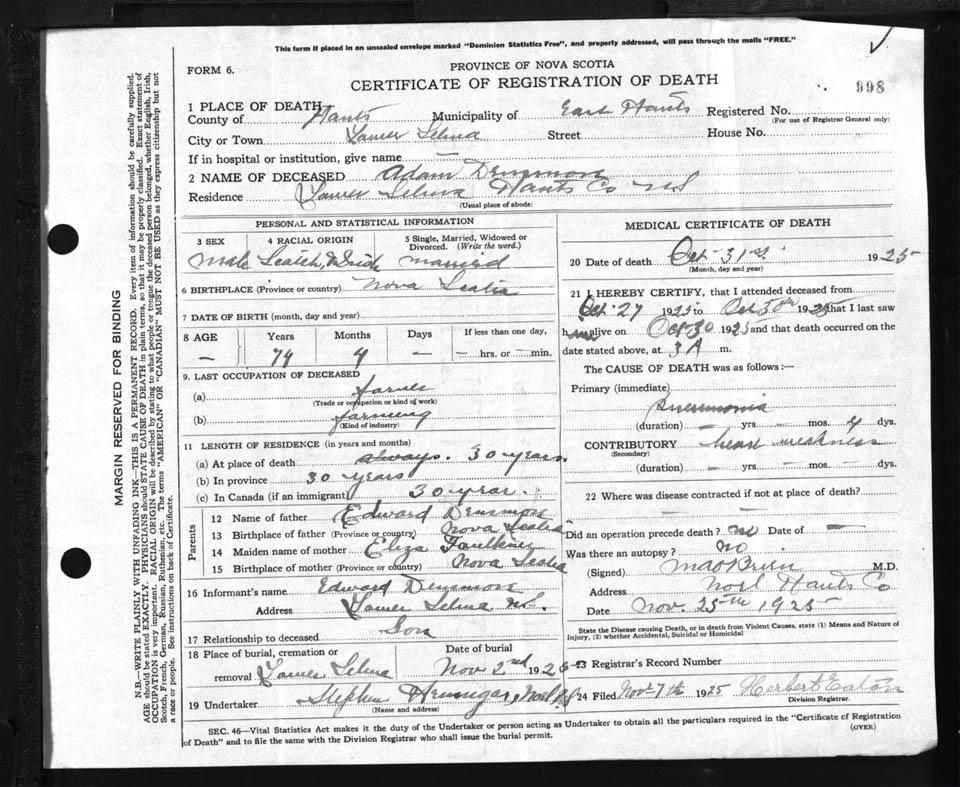 This form if placed in an unsealed envelope marked "Dominion Statistics Free", and properly addressed, will pass through the mails "FREE."
FORM 6.
PROVINCE OF NOVA SCOTIA
CERTIFICATE OF REGISTRATION OF DEATH
998
1 PLACE OF DEATH
County of Hants Municipality of East Hants Registered No.
(For use of Registrar General only)
City or Town Lower Selma Street House No.
If in hospital or institution, give name —
2 NAME OF DECEASED Adam Densmore
Residence Lower Selma Hants Co NS
(Usual place of abode)
PERSONAL AND STATISTICAL INFORMATION
3 SEX 4 RACIAL ORIGIN 5 Single, Married, Widowed or Divorced. (Write the word.)
Male Scotch, & Irish married
6 BIRTHPLACE (Province or country) Nova Scotia
7 DATE OF BIRTH (month, day and year)
8 AGE Years Months Days If less than one day,
— 74 4 — — hrs. or — min.
9. LAST OCCUPATION OF DECEASED
(a) farmer
(Trade or occupation or kind of work)
(b) farming
(Kind of industry)
11 LENGTH OF RESIDENCE (in years and months)
(a) At place of death always. 30 years.
(b) In province 30 years
(c) In Canada (if an immigrant) 30 year.
Parents
12 Name of father Edward Densmore
13 Birthplace of father (Province or country) Nova Scotia
14 Maiden name of mother Eliza Faulkner
15 Birthplace of mother (Province or country) Nova Scotia
16 Informant's name Edward Densmore
Address Lower Selma N.S.
17 Relationship to deceased Son
18 Place of burial, cremation or removal Lower Selma
Date of burial Nov 2nd 1925
19 Undertaker Stephen Noel
(Name and address)
MEDICAL CERTIFICATE OF DEATH
20 Date of death Oct 31st. 1925
(Month, day and year)
21 I HEREBY CERTIFY, that I attended deceased from
Oct-27 1925 to Oct 30th 1925 that I last saw
him alive on Oct-30 1925 and that death occurred on the
date stated above, at 3 A m.
The CAUSE OF DEATH was as follows :—
Primary (immediate)
Pneumonia
(duration) — yrs. — mos. 4 dys.
CONTRIBUTORY heart weakness
(Secondary)
(duration) — yrs. — mos. — dys.
22 Where was disease contracted if not at place of death?
—
Did an operation precede death ? no Date of —
Was there an autopsy ? no
(Signed) M.D.
Address Noel Hants Co
Date Nov. 25th 1925
State the Disease causing Death, or in death from Violent Causes, state (1) Means and Nature of Injury, (2) whether Accidental, Suicidal or Homicidal
23 Registrar's Record Number
24 Filed Nov 7th 1925 Herbert Eaton
Division Registrar.
SEC. 46—Vital Statistics Act makes it the duty of the Undertaker or person acting as Undertaker to obtain all the particulars required in the "Certificate of Registration
of Death" and to file the same with the Division Registrar who shall issue the burial permit.
(OVER)
MARGIN RESERVED FOR BINDING
N.B.—WRITE PLAINLY WITH UNFADING INK—THIS IS A PERMANENT RECORD. Every item of information should be carefully supplied.
AGE should be stated EXACTLY. PHYSICIANS should STATE CAUSE OF DEATH in plain terms, so that it may be properly classified. Exact statement of
OCCUPATION is very important. RACIAL ORIGIN will be described by stating to what people or tongue the deceased person belonged, whether English, Irish,
Scotch, French, German, Russian, Ruthenian, etc. The terms "AMERICAN" OR "CANADIAN" MUST NOT BE USED as they express citizenship but not
a race or people. See instructions on back of Certificate.